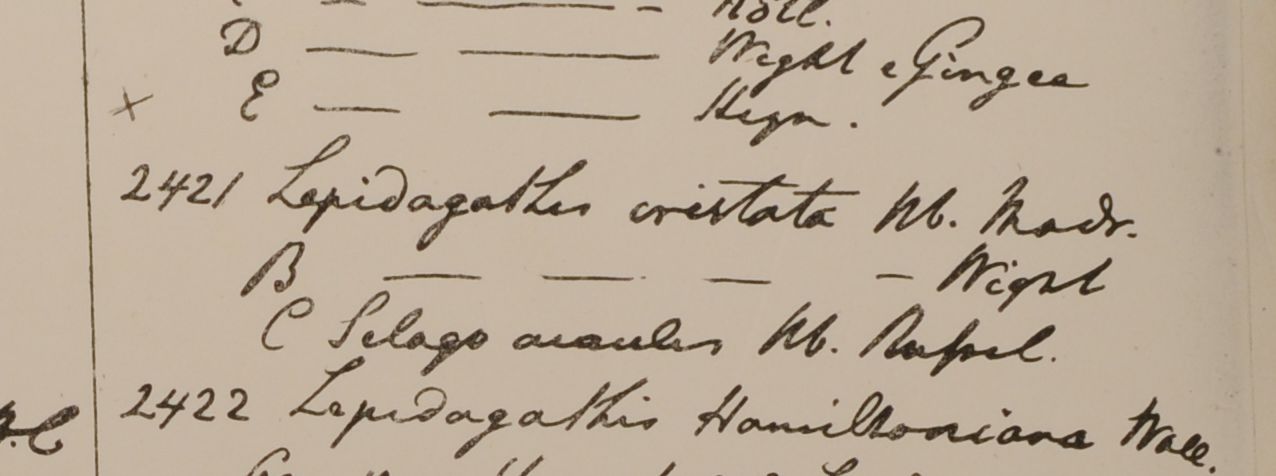 Rottl.
D — — Wight e Gingee
× E — — Heyn.
2421 Lepidagathis cristata Hb. Madr.
B — — — — Wight
C Selago acaulis Hb. Russel.
2422 Lepidagathis Hamiltoniana Wall.